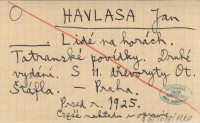 O HAVLASA Jan
—. Lidé na horách.
Tatranské povídky. Druhé
vydání. S 11 dřevoryty Ot.
Štáfla. — Praha.
Před r. 1925.
Část nákladu